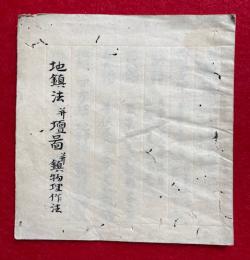 地鎮法并壇図并鎮物理作法